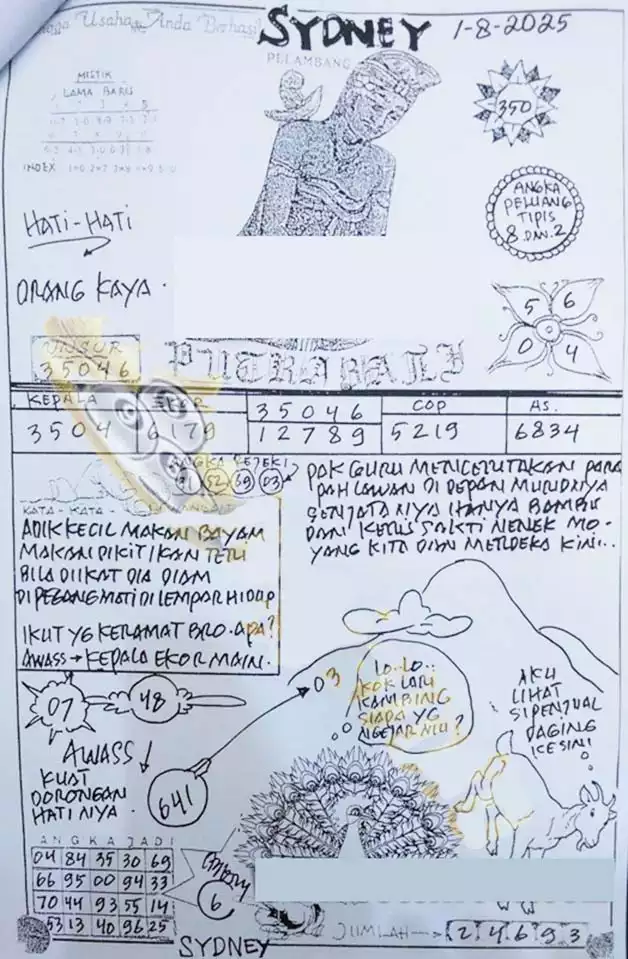 Usaha Anda Berhasil
SYDNEY 1-8-2025
PELAMBANG
MISTIK
LAMA BARU
INDEX
350
ANGKA
PELUANG
TIPIS
8 DAN 2
HATI-HATI
ORANG KAYA.
5 6
0 4
UNSUR
35046
PUTRA BALI
KEPALA
3504
EKOR
6179
35046
12789
COP
5219
AS.
6834
52 39 03
PAK GURU MENCERITAKAN PARA
PAHLAWAN DI DEPAN MURIDNYA
SENJATANYA HANYA BAMBU
DAN KERIS SAKTI NENEK MO-
YANG KITA DIAN MERDEKA KINI...
KATA-KATA
ADIK KECIL MAKAN BAYAM
MAKAN DIKIT IKAN TERI
BILA DIIKAT DIA DIAM
DIPEGANG MATI DILEMPAR HIDUP
IKUT YG KERAMAT BRO. APA?
AWASS → KEPALA EKOR MAIN.
LO..LO..
KOK LARI
KAMBING
SIAPA YG
NGEJAR NIU?
AKU
LIHAT
SI PENJUAL
DAGING
KESINI
03
07
48
AWASS
KUAT
DORONGAN
HATINYA.
641
ANGKA JADI
04 84 35 30 69
66 95 00 94 33
70 44 93 55 14
53 13 40 96 25
6
JUMLAH → 2 4 6 9 3
SYDNEY